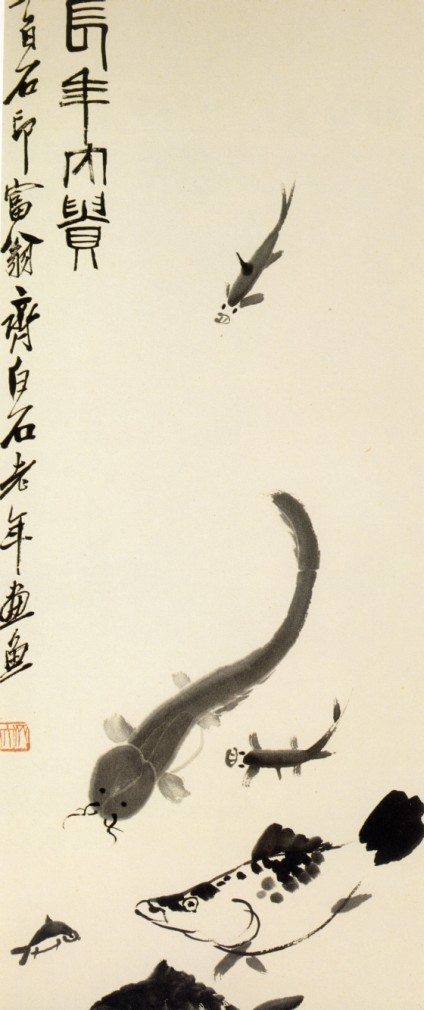 長年大貴
百石印富翁齊白石老年畫魚